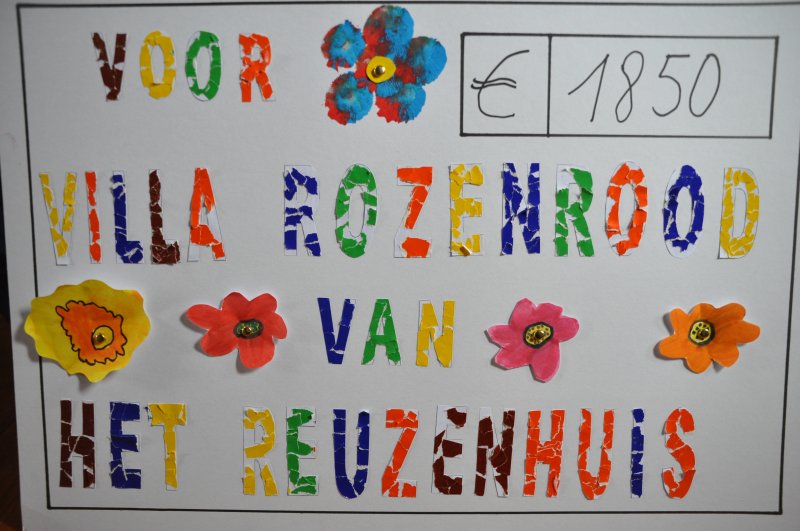 VOOR
€ 1850
VILLA ROZENROOD
VAN
HET REUZENHUiS